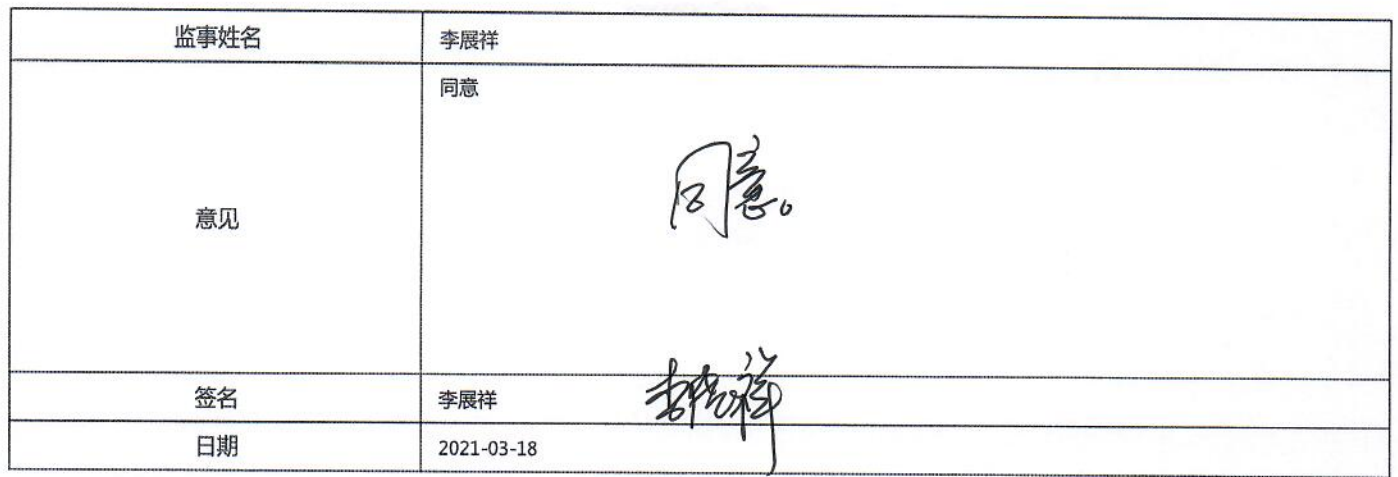 监事姓名 李展祥
同意
同意。
意见
签名 李展祥 李展祥
日期 2021-03-18